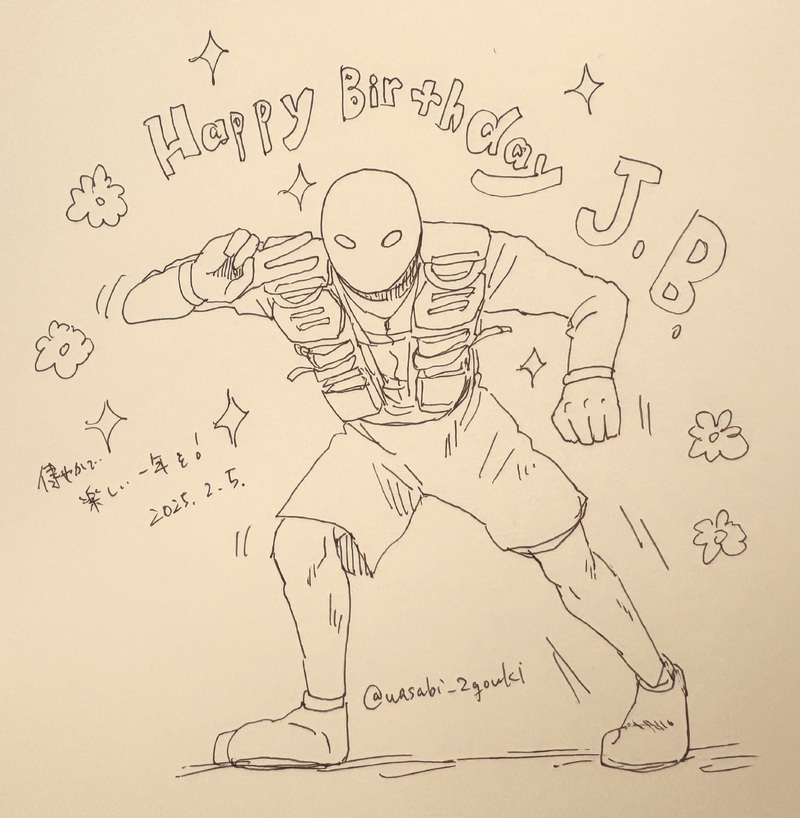 Happy Birthday
J.B.
健やかで、
楽しい一年を！
2025.2.5.
@wasabi_2gouki